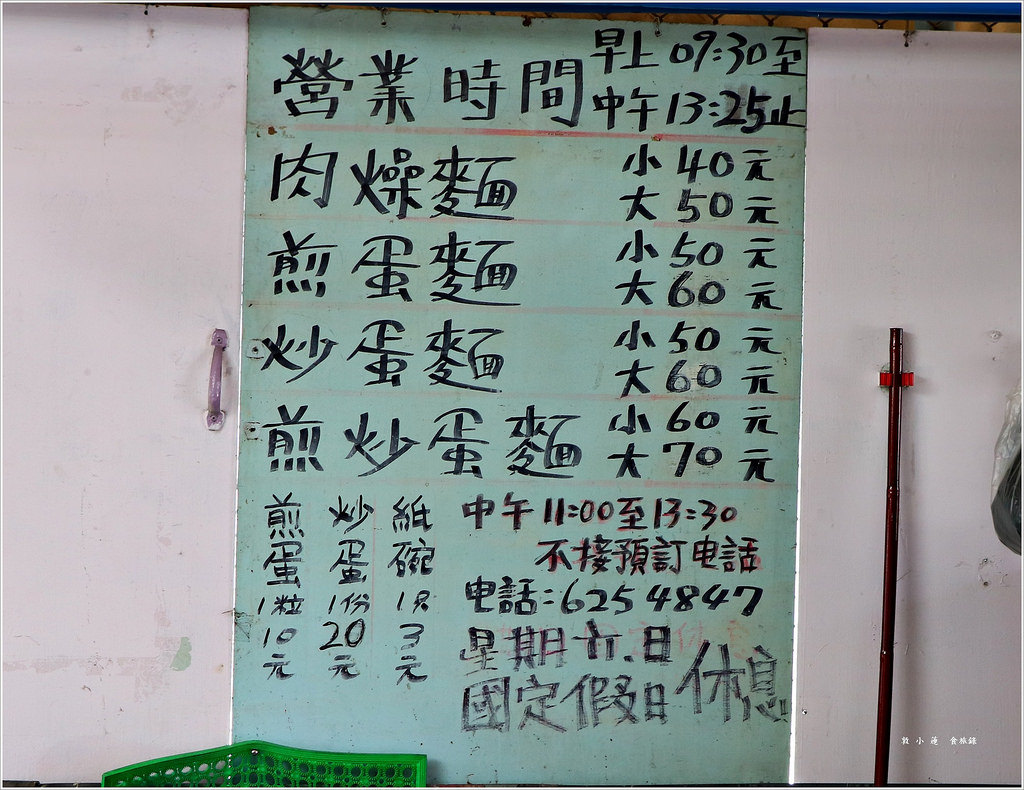 營業時間 早上 09:30至
中午 13:25止
肉燥麵 小 40 元
大 50 元
煎蛋麵 小 50 元
大 60 元
炒蛋麵 小 50 元
大 60 元
煎炒蛋麵 小 60 元
大 70 元
煎蛋 1粒 10元
炒蛋 1份 20元
紙碗 1只 3元
中午 11:00至13:30
不接預訂电話
电話:625 4847
星期六.日
國定假日 休息
敦小蓮 食旅錄